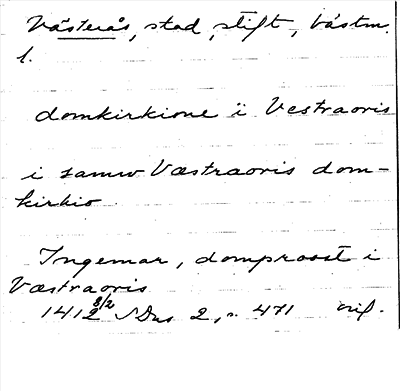 Västerås, stad, stift, Västm.
l.
domkirkione ï Vestraoris
i samw Væstraoris dom-
kirkio
Ingemar, domproost i
Væstraoris
1412 8/2 SDns 2, s. 471 orig.